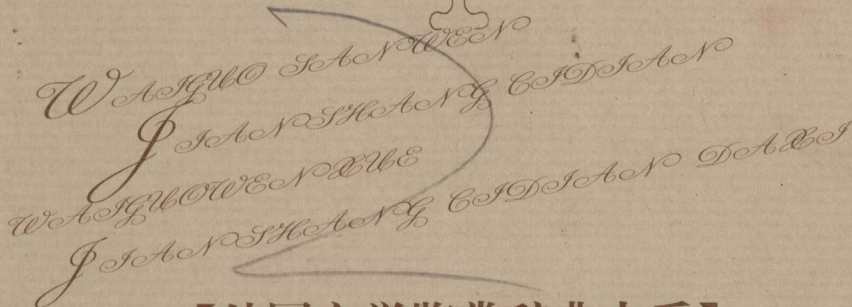 WAIGUO SANWEN
JIANSHANG CIDIAN
WAIGUOWENXUE
JIANSHANG CIDIAN DAXI